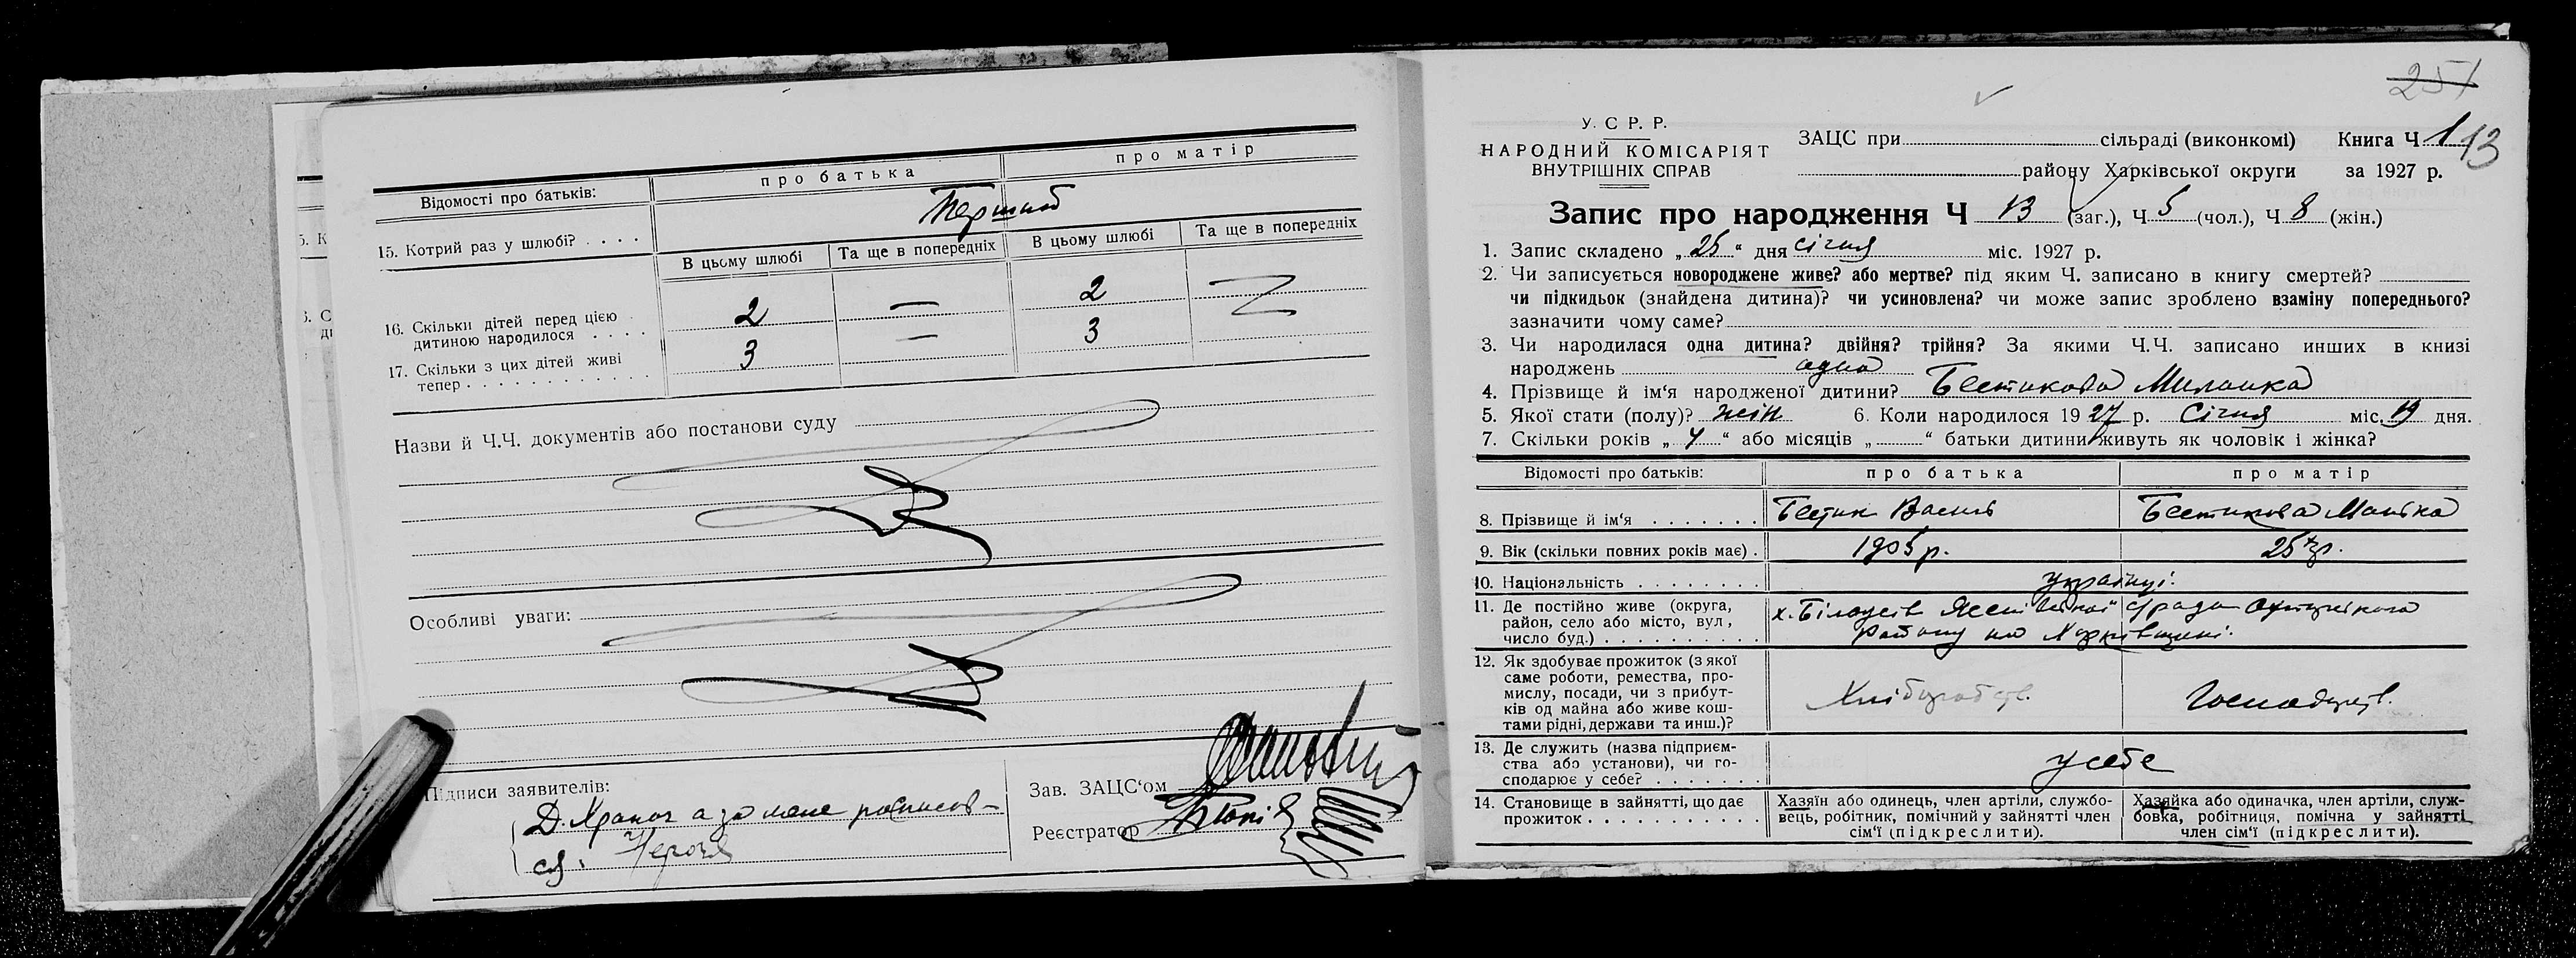 Відомості про батьків:
про батька
про матір
15. Котрий раз у шлюбі? . . . .
Перший
В цьому шлюбі
Та ще в попередніх
В цьому шлюбі
Та ще в попередніх
16. Скільки дітей перед цією
дитиною народилося . . . .
2 — 2 —
17. Скільки з цих дітей живі
тепер . . . . . . . . . . . .
3 — 3
Назви й Ч.Ч. документів або постанови суду
Особливі уваги:
Підписи заявителів:
а за мене росписов-
ся:
Зав. ЗАЦС'ом
Реєстратор
251
У. С Р. Р.
НАРОДНИЙ КОМІСАРІЯТ
ВНУТРІШНІХ СПРАВ
ЗАЦС при сільраді (виконкомі) Книга Ч 1
13
району Харківської округи за 1927 р.
Запис про народження Ч 13 (заг.), Ч 5 (чол.), Ч 8 (жін.)
1. Запис складено „ 25 “ дня січня міс. 1927 р.
2. Чи записується новороджене живе? або мертве? під яким Ч. записано в книгу смертей?
чи підкидьок (знайдена дитина)? чи усиновлена? чи може запис зроблено взаміну попереднього?
зазначити чому саме?
3. Чи народилася одна дитина? двійня? трійня? За якими Ч.Ч. записано инших в книзі
народжень одна
4. Прізвище й ім‘я народженої дитини? Бестикова Миланка
5. Якої стати (полу)? жін 6. Коли народилось 19 27 р. Січня міс. 19 дня.
7. Скільки років „ 4 “ або місяців „ “ батьки дитини живуть як чоловік і жінка?
Відомості про батьків:
про батька
про матір
8. Прізвище й ім‘я . . . . . . .
Бестик Василь
Бестикова Манька
9. Вік (скільки повних років має) .
1905 р.
25
10. Національність . . . . . . . .
українці.
11. Де постійно живе (округа,
район, село або місто, вул,
число буд.) . . . . . . . . . .
х. с/ради
району на Харківщині.
12. Як здобуває прожиток (з якої
саме роботи, ремества, про-
мислу, посади, чи з прибут-
ків од майна або живе кош-
тами рідні, держави та инш.)?
Хліборобств.
Господарств.
13. Де служить (назва підприєм-
ства або установи), чи го-
сподарює у себе? . . . . . . .
у себе
14. Становище в зайнятті, що дає
прожиток . . . . . . . . . . .
Хазяїн або одинець, член артіли, службо-
вець, робітник, помічний у зайнятті член
сім‘ї (підкреслити).
Хазяйка або одиначка, член артіли, служ-
бовка, робітниця, помічна у зайнятті
член сім‘ї (підкреслити).